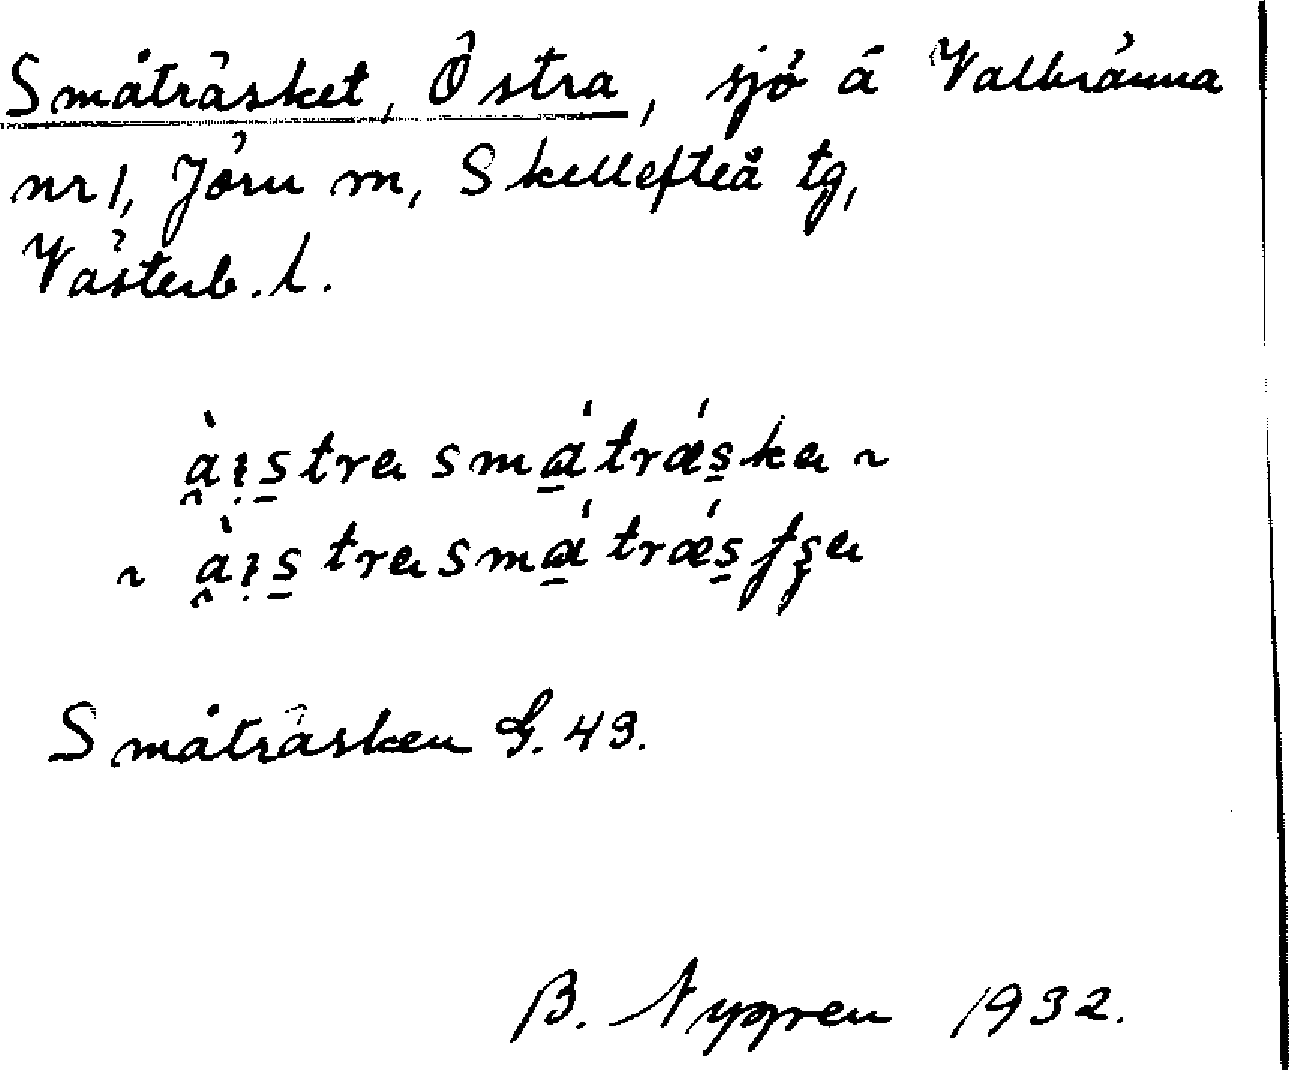 Småträsket, Östra, sjö å Valbränna
nr 1, Jörn m, Skellefteå tg,
Västerb. l.
à̯ı̣s̱tra smá̱trǽs̱ka ~
~ à̯ı̣s̱tra smá̱trǽs̱tʃa
Småträsken G. 43.
B. Nygren 1932.